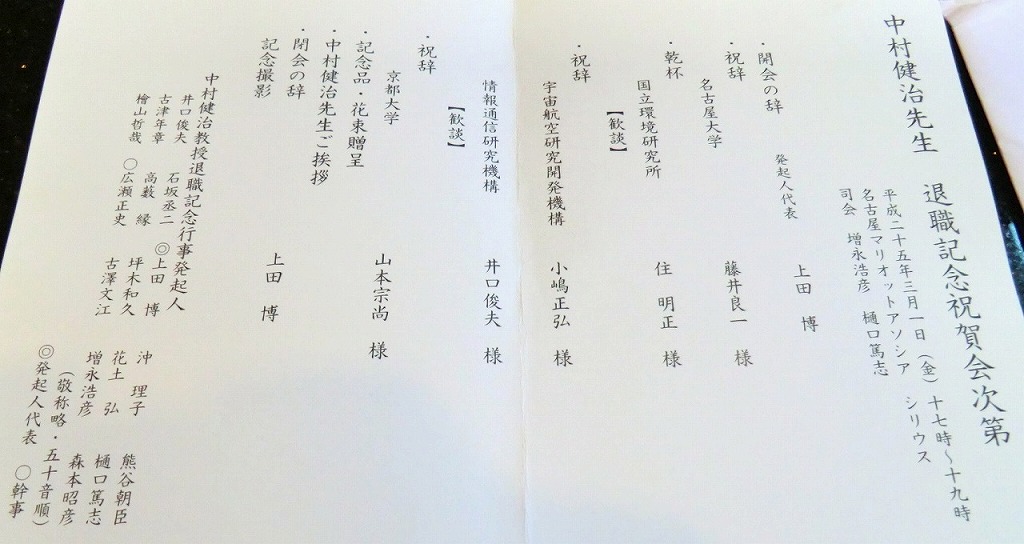 中村健治先生　退職記念祝賀会次第
平成二十五年三月一日（金）十七時～十九時
名古屋マリオットアソシア　シリウス
司会　増永浩彦　樋口篤志
・開会の辞　発起人代表　上田　博
・祝辞　名古屋大学　藤井良一　様
・乾杯　国立環境研究所　住　明正　様
【歓談】
・祝辞　宇宙航空研究開発機構　小嶋正弘　様
情報通信研究機構　井口俊夫　様
【歓談】
・祝辞　京都大学　山本宗尚　様
・記念品・花束贈呈
・中村健治先生ご挨拶
・閉会の辞　上田　博
記念撮影
中村健治教授退職記念行事発起人
井口俊夫　石坂丞二　◎上田　博　沖　理子　熊谷朝臣
古津年章　高薮　縁　坪木和久　花土　弘　樋口篤志
檜山哲哉　○広瀬正史　古澤文江　増永浩彦　森本昭彦
（敬称略・五十音順）
◎発起人代表　○幹事